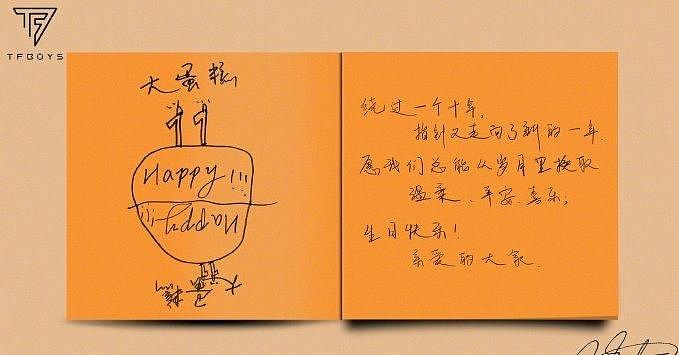 TFBOYS
大蛋糕
Happy!!!
Happy!!!
大蛋糕
绕过一个十年,
指针又走向了新的一年.
愿我们总能从岁月里换取
温柔、平安、喜乐;
生日快乐!
亲爱的大家.